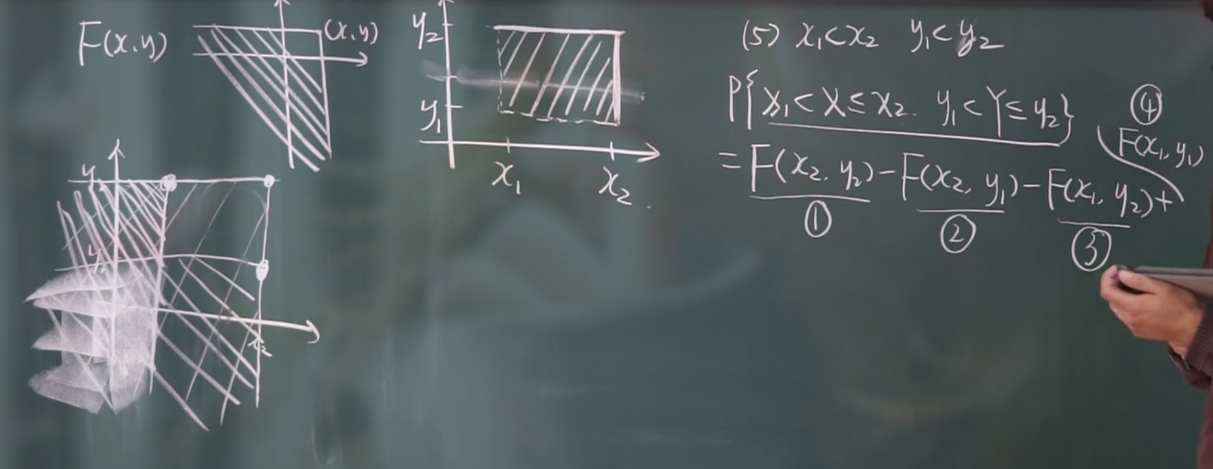 F(x,y)
(x,y)
y₂
y₁
x₁ x₂
y₂
y₁
x₂
(5) x₁<x₂ y₁<y₂
P{x₁<X≤x₂. y₁<Y≤y₂}
=F(x₂,y₂)-F(x₂,y₁)-F(x₁,y₂)+F(x₁,y₁)
① ② ③ ④